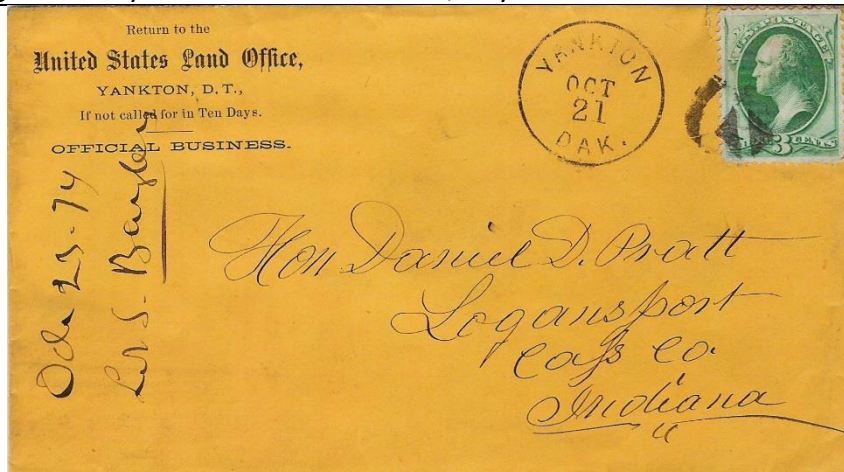 Return to the
United States Land Office,
YANKTON, D.T.,
If not called for in Ten Days.
OFFICIAL BUSINESS.
YANKTON
OCT
21
DAK.
U.S. POSTAGE
3 CENTS
Hon Daniel D. Pratt
Logansport
Cass Co
Indiana
23-74